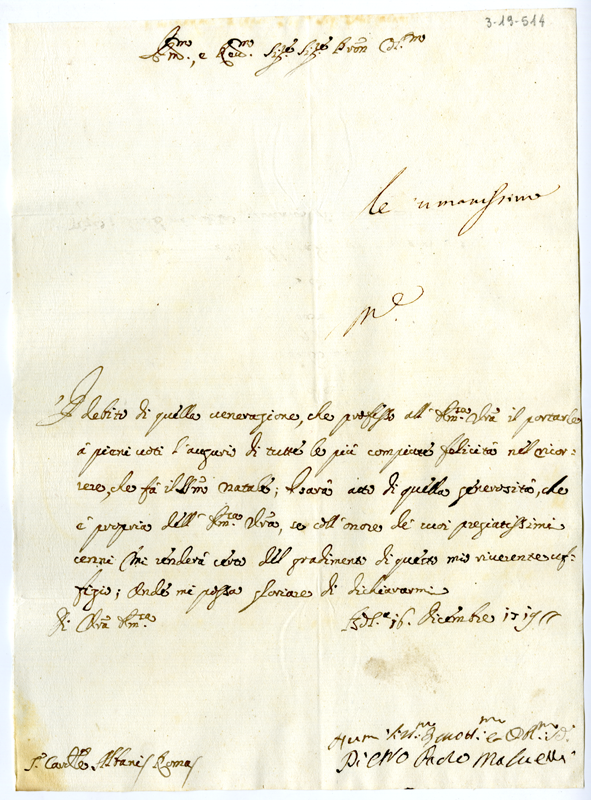 3-19-514
Em.mo, e Rev.mo Sig.re Sig.re Pron Col.mo
È debito di quella venerazione, che professo all'Em.za Vrã il portarle
à pieni voti l'augurio di tutte le più compiute felicità nel ricor-
rere, che fà il S.mo Natale; e sarà atto di quella generosità, che
è propria dell'Em.za Vrã, se coll'onore de' suoi pregiatissimi
cenni mi renderà certo del gradimento di questo mio riverente uf-
fizio; onde mi possa gloriare di dichiararmi
Di Vrã Em.za
16. Dicembre 1719
Hum.
Pietro Paolo
S.r Card.le Albani Roma